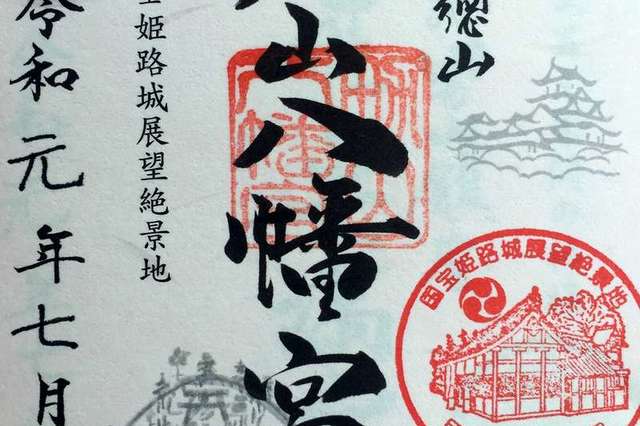 山
山八幡宮
姫路城展望絶景地
令和元年七月
国宝姫路城展望絶景地